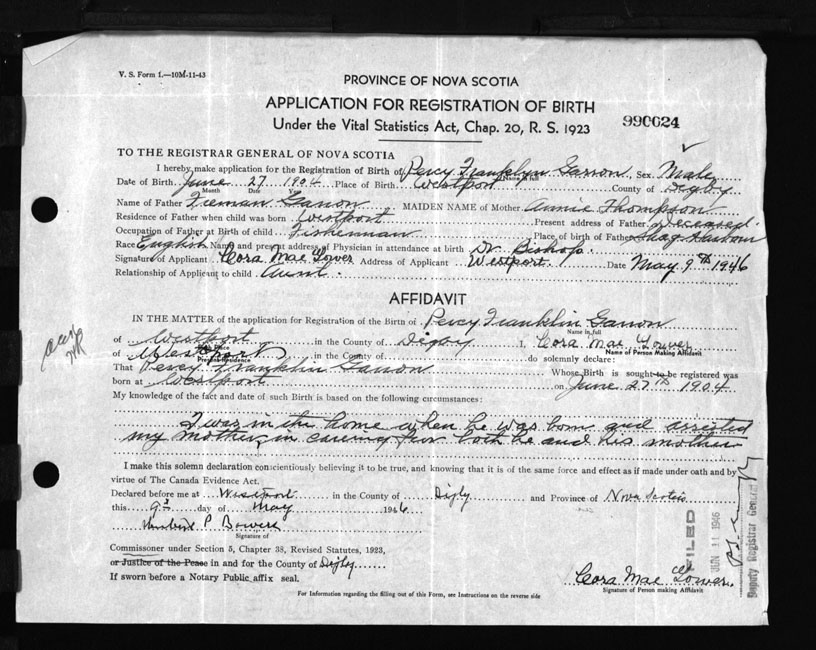 V. S. Form 1.—10M-11-43
PROVINCE OF NOVA SCOTIA
APPLICATION FOR REGISTRATION OF BIRTH
Under the Vital Statistics Act, Chap. 20, R. S. 1923
990024
TO THE REGISTRAR GENERAL OF NOVA SCOTIA
I hereby make application for the Registration of Birth of Percy Franklyn Sex Male
Name in full
Date of Birth June 27 1904 Place of Birth Westport County of Digby
Month Date Year
Name of Father Freeman MAIDEN NAME of Mother Annie Thompson
Residence of Father when child was born Westport Present address of Father Deceased.
Occupation of Father at Birth of child Fisherman Place of birth of Father
Race English Name and present address of Physician in attendance at birth Dr. Bishop.
Signature of Applicant Cora Mae Address of Applicant Westport. Date May 9th 1946
Relationship of Applicant to child Aunt.
AFFIDAVIT
IN THE MATTER of the application for Registration of the Birth of Percy Franklin
Name in full
of Westport in the County of Digby I, Cora Mae
Birth Place
Name of Person Making Affidavit
of Westport in the County of do solemnly declare:
Present Residence
That Percy Franklin Whose Birth is sought to be registered was
born at Westport on June 27th 1904
My knowledge of the fact and date of such Birth is based on the following circumstances:
I was in the home when he was born and assisted
my mother in careing for both he and his mother
I make this solemn declaration conscientiously believing it to be true, and knowing that it is of the same force and effect as if made under oath and by
virtue of The Canada Evidence Act.
Declared before me at Westport in the County of Digby and Province of Nova Scotia
this 9th day of May 1946
P Bowers
Signature of
Commissioner under Section 5, Chapter 38, Revised Statutes, 1923,
or Justice of the Peace in and for the County of Digby
If sworn before a Notary Public affix seal.
Cora Mae
Signature of Person making Affidavit
For Information regarding the filling out of this Form, see Instructions on the reverse side
FILED
JUN 11 1946
Deputy Registrar General